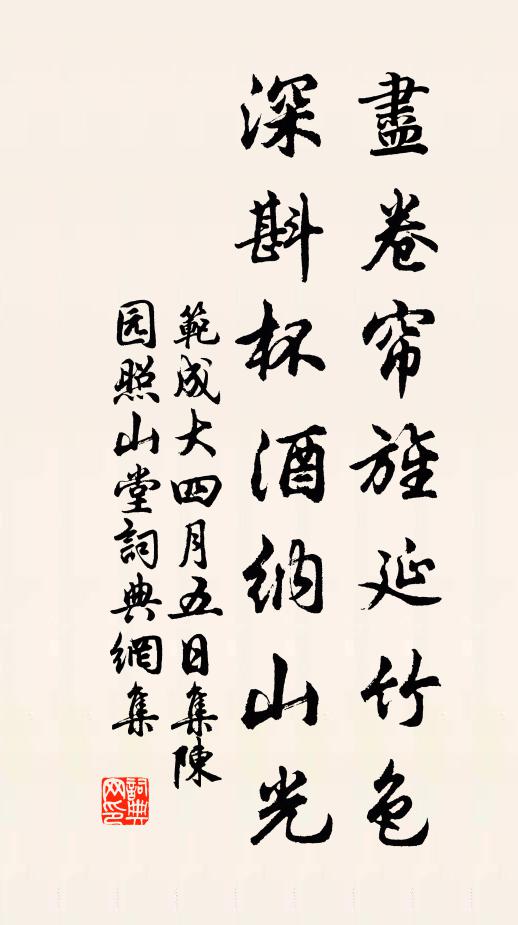 盡卷帘旌延竹色
深斟杯酒納山光
範成大四月五日集陳
园照山堂詞典網集
詞典網印